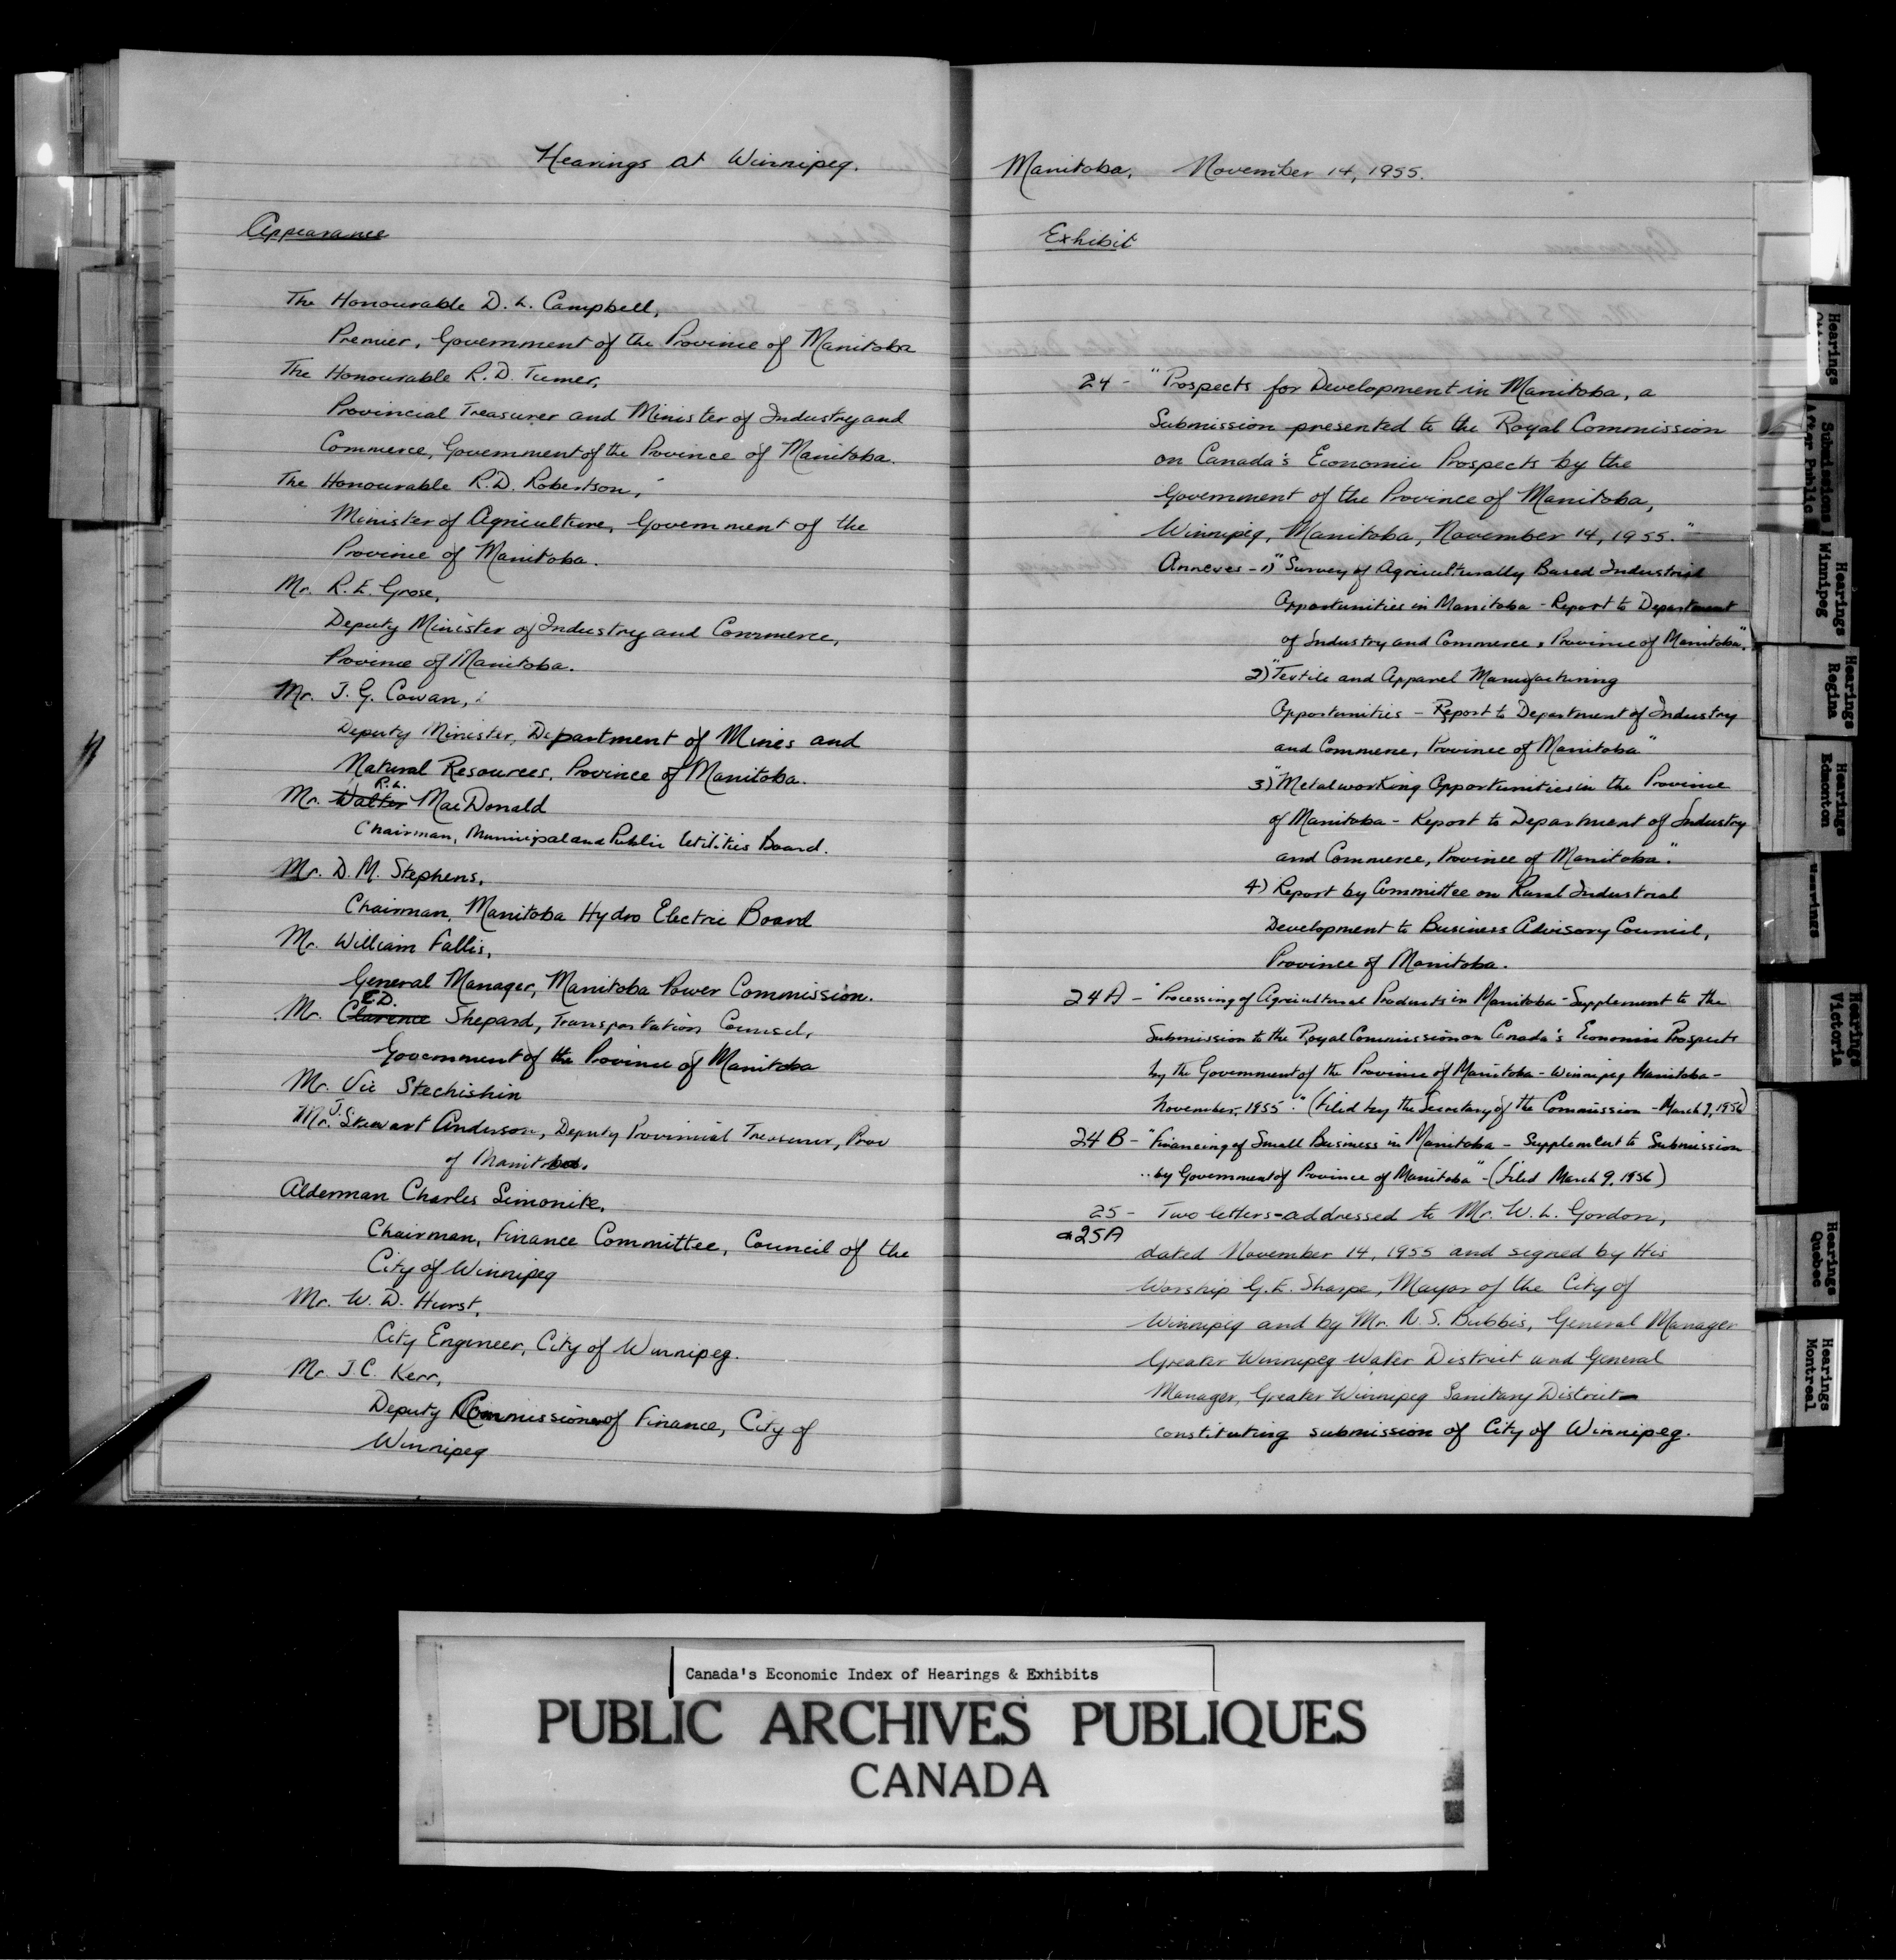 Hearings at Winnipeg.
Appearance
The Honourable D. L. Campbell,
Premier, Government of the Province of Manitoba
The Honourable R. D. Turner,
Provincial Treasurer and Minister of Industry and
Commerce, Government of the Province of Manitoba.
The Honourable R. D. Robertson,
Minister of Agriculture, Government of the
Province of Manitoba.
Mr. R. E. Grose,
Deputy Minister of Industry and Commerce,
Province of Manitoba.
Mr. J. G. Cowan,
Deputy Minister, Department of Mines and
Natural Resources, Province of Manitoba.
R. L.
Mr. Walter MacDonald
Chairman, Municipal and Public Utilities Board.
Mr. D. M. Stephens,
Chairman, Manitoba Hydro Electric Board
Mr. William Fallis,
General Manager, Manitoba Power Commission.
C.D.
Mr. Clarence Shepard, Transportation Counsel,
Government of the Province of Manitoba
Mr. Vic Stechishin
Mr. J. Stewart Anderson, Deputy Provincial Treasurer, Prov
of Manitoba.
Alderman Charles Simonite,
Chairman, Finance Committee, Council of the
City of Winnipeg
Mr. W. D. Hurst,
City Engineer, City of Winnipeg.
Mr J. C. Kerr,
Deputy Commissioner of Finance, City of
Winnipeg
Manitoba, November 14, 1955.
Exhibit
24 - "Prospects for Development in Manitoba, a
Submission presented to the Royal Commission
on Canada's Economic Prospects by the
Government of the Province of Manitoba,
Winnipeg, Manitoba, November 14, 1955."
Annexes - 1) "Survey of Agriculturally Based Industrial
Opportunities in Manitoba - Report to Department
of Industry and Commerce, Province of Manitoba".
2) "Textile and Apparel Manufacturing
Opportunities - Report to Department of Industry
and Commerce, Province of Manitoba"
3) "Metalworking Opportunities in the Province
of Manitoba - Report to Department of Industry
and Commerce, Province of Manitoba".
4) Report by Committee on Rural Industrial
Development to Business Advisory Council,
Province of Manitoba.
24 A - "Processing of Agricultural Products in Manitoba - Supplement to the
Submission to the Royal Commission on Canada's Economic Prospects
by the Government of the Province of Manitoba - Winnipeg Manitoba -
November, 1955." (Filed by the Secretary of the Commission - March 9, 1956)
24 B - "Financing of Small Business in Manitoba - Supplement to Submission
.. by Government of Province of Manitoba" - (filed March 9, 1956)
25 - Two letters - addressed to Mr. W. L. Gordon,
& 25A
dated November 14, 1955 and signed by His
Worship G. E. Sharpe, Mayor of the City of
Winnipeg and by Mr. N. S. Bubbis, General Manager
Greater Winnipeg Water District and General
Manager, Greater Winnipeg Sanitary District -
constituting submission of City of Winnipeg.
Hearings
Submissions
After Public
Hearings
Winnipeg
Hearings
Regina
Hearings
Edmonton
Hearings
Hearings
Victoria
Hearings
Quebec
Hearings
Montreal
Canada's Economic Index of Hearings & Exhibits
PUBLIC ARCHIVES PUBLIQUES
CANADA